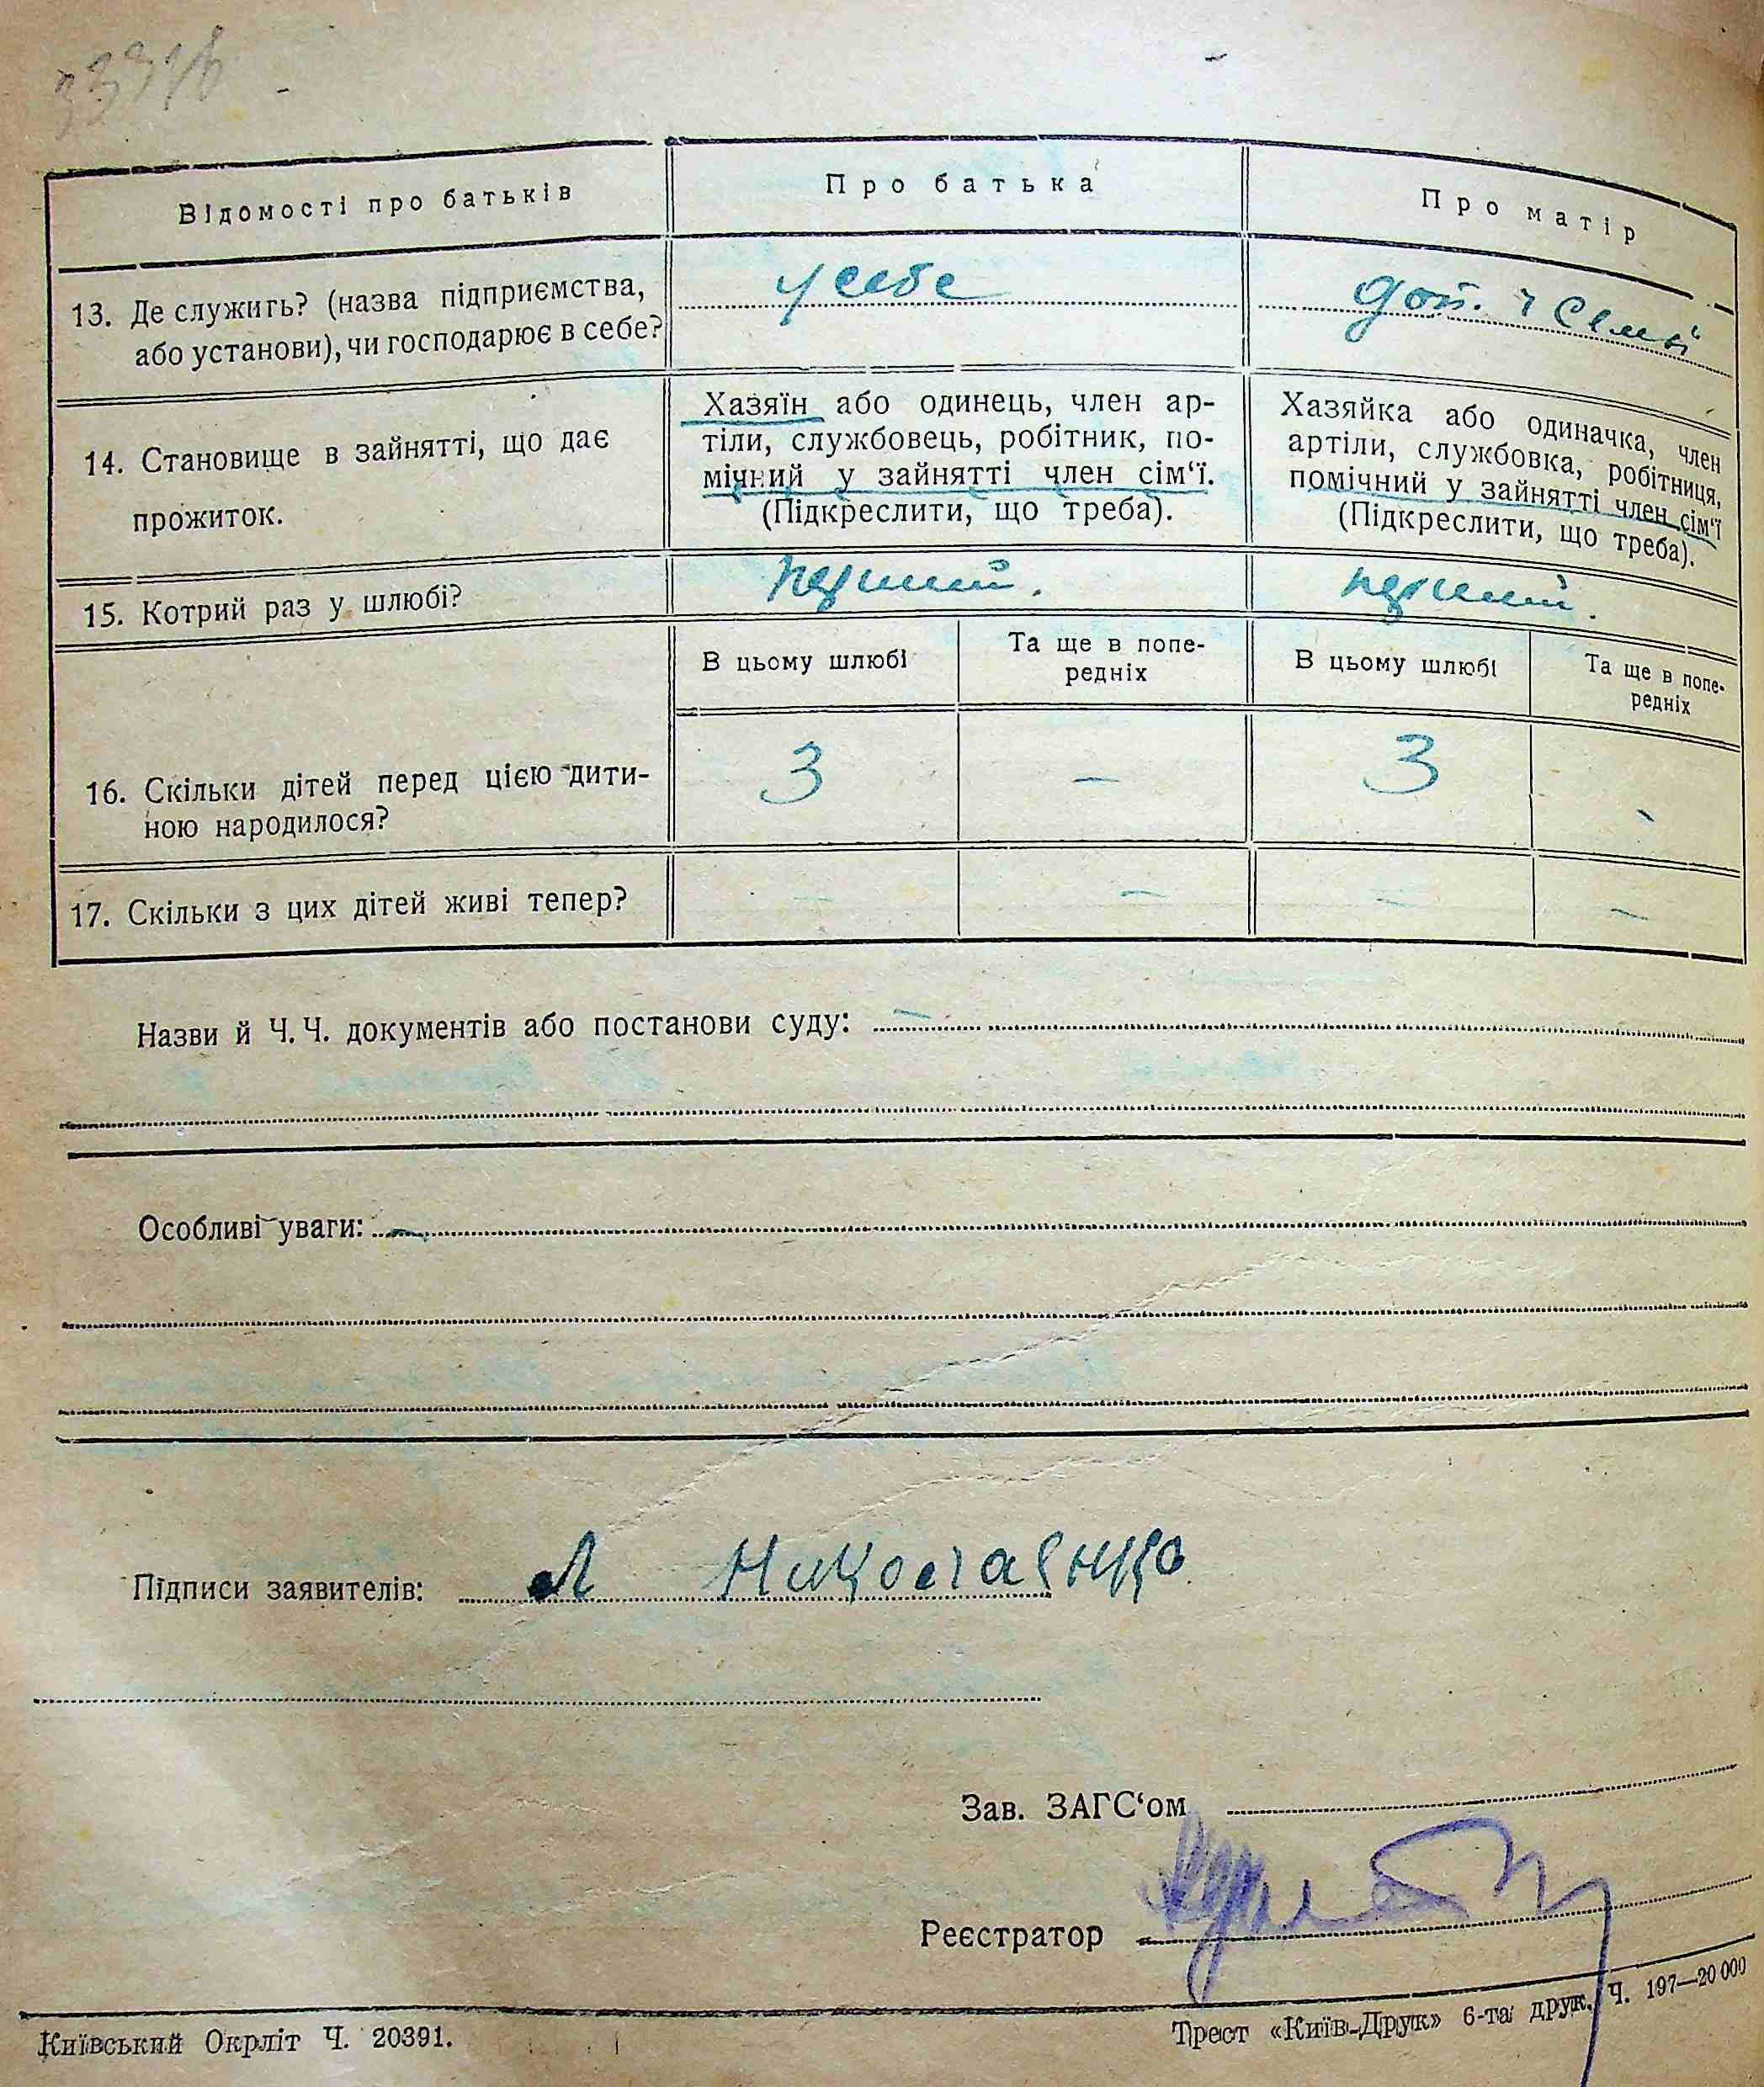 Відомості про батьків
Про батька
Про матір
13. Де служить? (назва підприємства,
або установи), чи господарює в себе?
у себе
доп. у семьї
14. Становище в зайнятті, що дає
прожиток.
Хазяїн або одинець, член ар-
тіли, службовець, робітник, по-
мічний у зайнятті член сім‘ї.
(Підкреслити, що треба).
Хазяйка або одиначка, член
артіли, службовка, робітниця,
помічний у зайнятті член сім‘ї
(Підкреслити, що треба).
15. Котрий раз у шлюбі?
перший.
перший.
В цьому шлюбі
Та ще в попе-
редніх
В цьому шлюбі
Та ще в попе-
редніх
16. Скільки дітей перед цією дити-
ною народилося?
3 — 3 -
17. Скільки з цих дітей живі тепер?
— — — —
Назви й Ч. Ч. документів або постанови суду: —
Особливі уваги: —
Підписи заявителів: Л Николаенко
Зав. ЗАГС‘ом
Реєстратор
Київський Окрліт Ч. 20391.
Трест «Київ-Друк» 6-та друк. Ч. 197—20 000